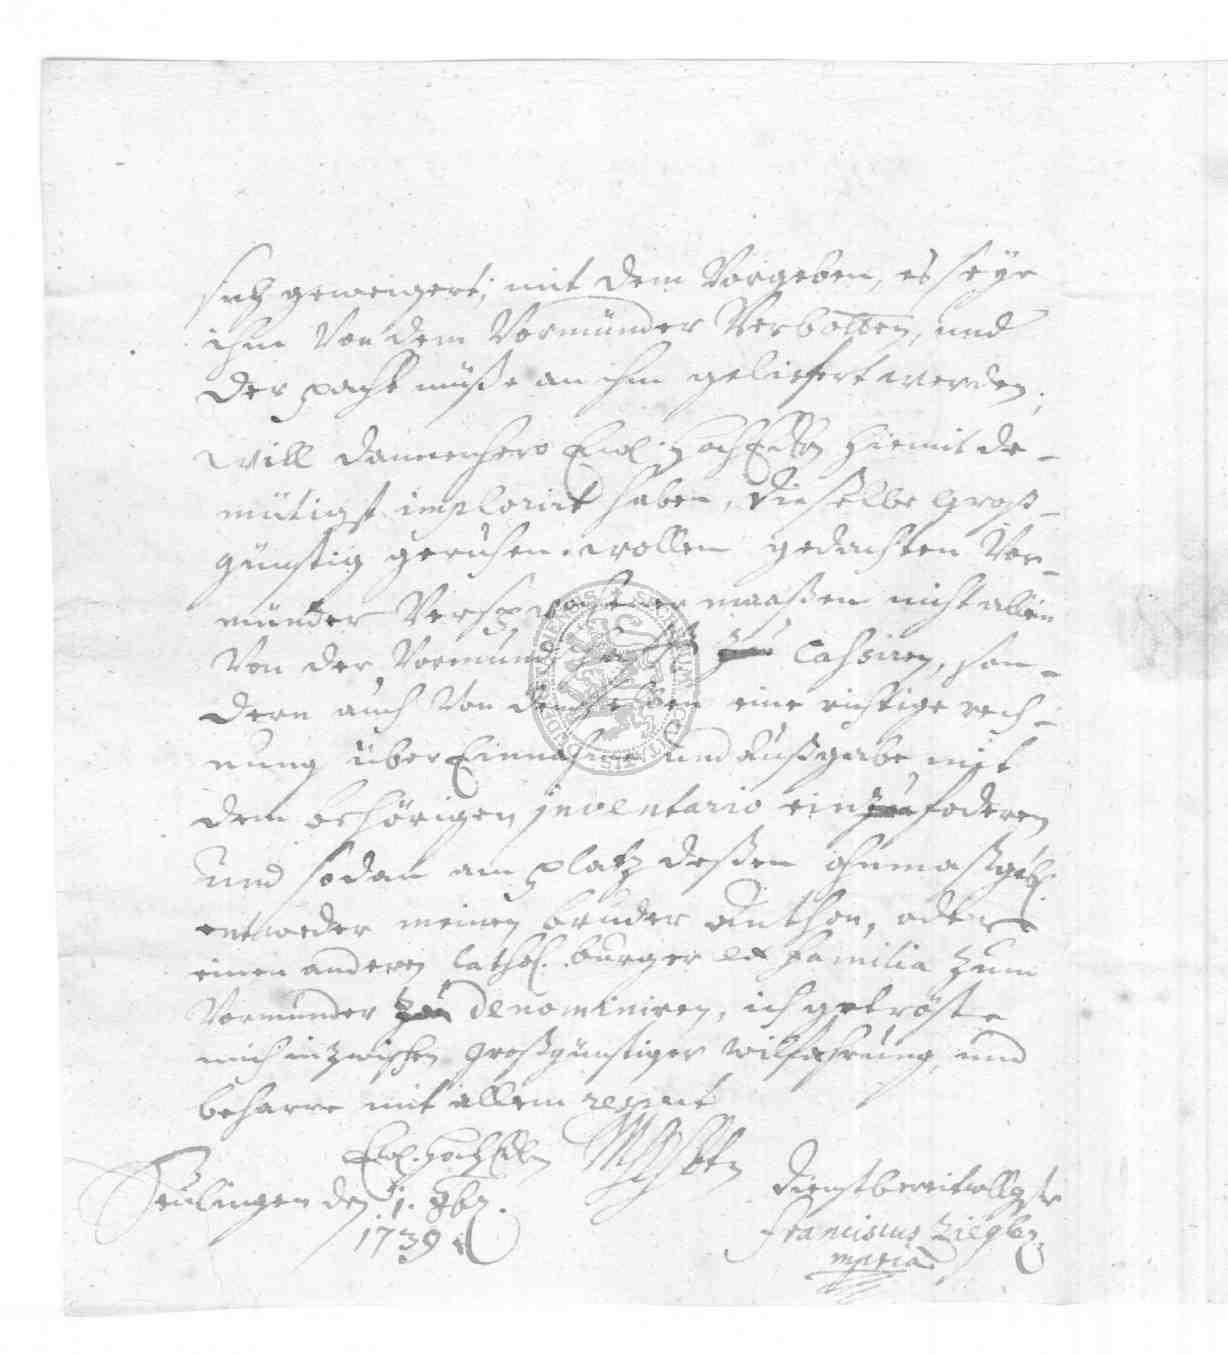 sich geweigert; mit dem Vorgeben, es seye
ihm Von dem Vormünder Verbotten, und
der pacht müße an ihm geliefert werden;
Will dannenhero Ewl. HochEdl. hiemit de-
mütigst implorirt haben, dieselbe Groß-
günstig geruhen wollen gedachten Vor-
münder Versprochener maaßen nicht allein
Von der Vormundschafft zu cassiren, son-
dern auch Von demselben eine richtige rech-
nung über Einnahme und Außgabe mit
dem behörigen inventario einzufoderen
und sodan am platz deßen ohnmaßgebl.
entweder meinen bruder Anthon, oder
einen anderen Cathol. burger ex familia zum
Vormunder zu denominiren, ich getröste
mich inzwischen großgünstiger wilfahrung, und
beharre mit allem respect
Ewl. HochEdlen
Seulingen den 1. 8br. dienstbereitwilligster
1739 Franciscus Ziegler
mpria